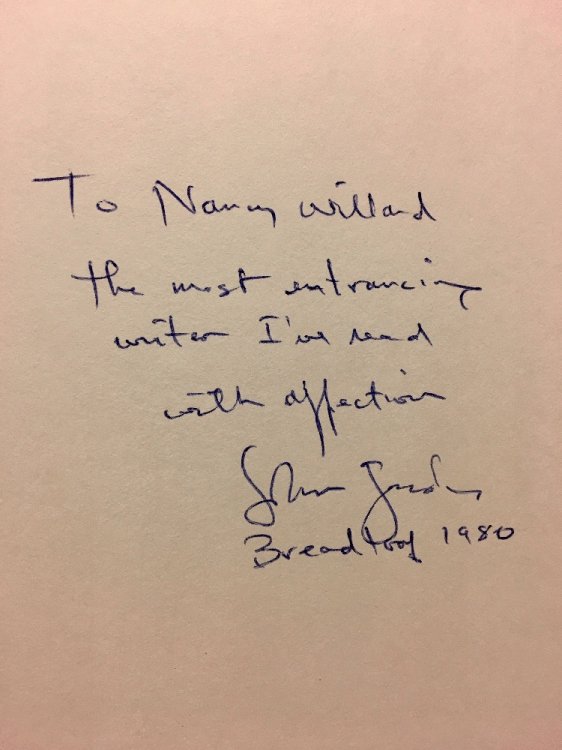 To Nancy Willard
the most entrancing
writer I've read
with affection
John Gardner
Breadloaf 1980